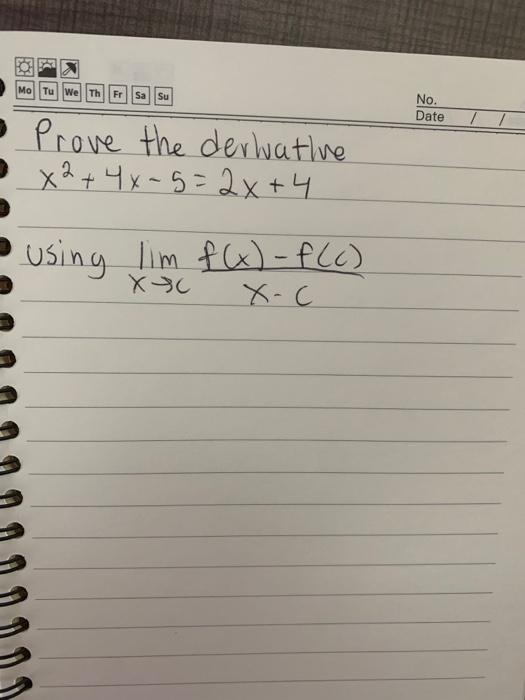 Mo Tu We Th Fr Sa Su
No.
Date / /
Prove the derivative
x² + 4x - 5 = 2x + 4
using lim f(x) - f(c)
x→c x - c